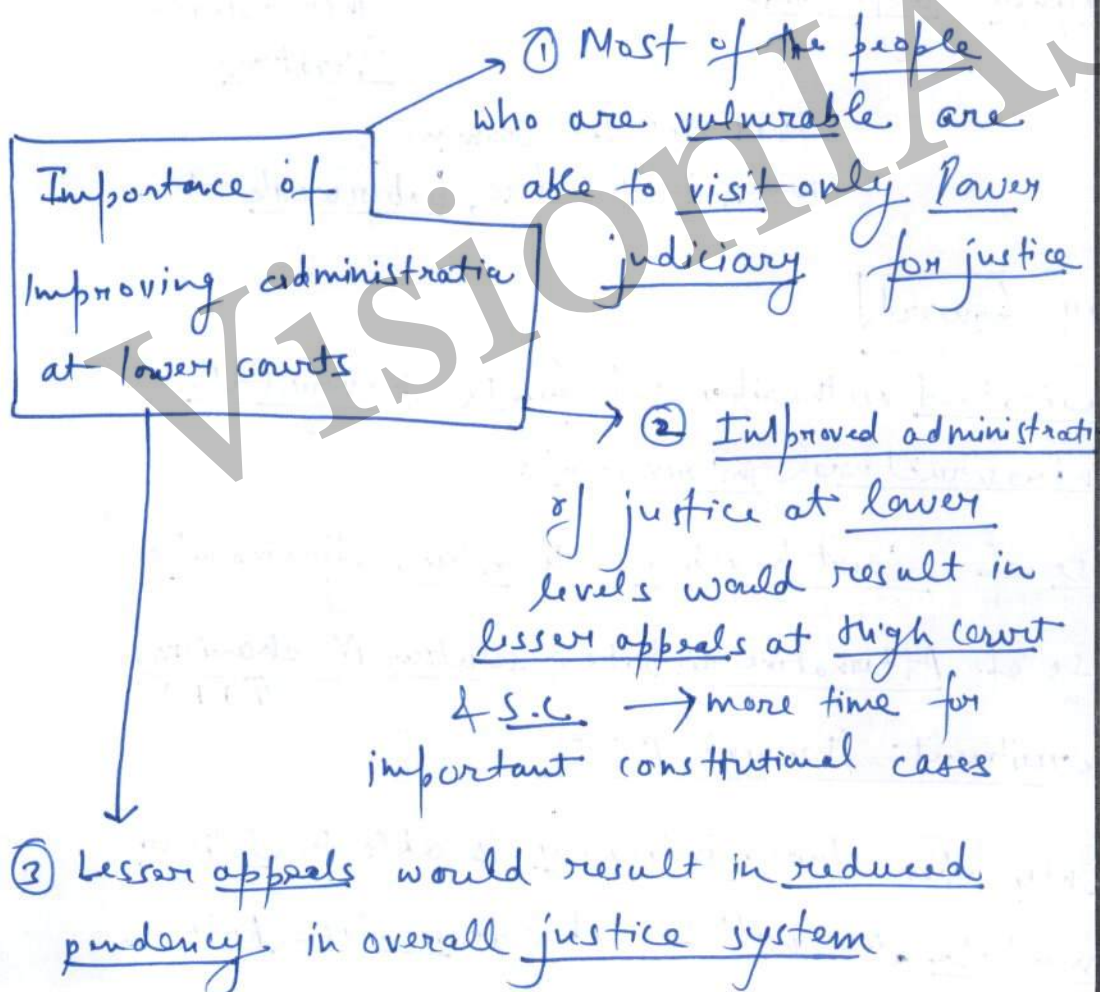 Importance of
Improving administratio
at lower courts
① Most of the people
who are vulnerable are
able to visit only lower
judiciary for justice
② Improved administrati
of justice at lower
levels would result in
lesser appeals at High court
& S.C. → more time for
important constitutional cases
③ Lesser appeals would result in reduced
pendency in overall justice system.
VisionIAS